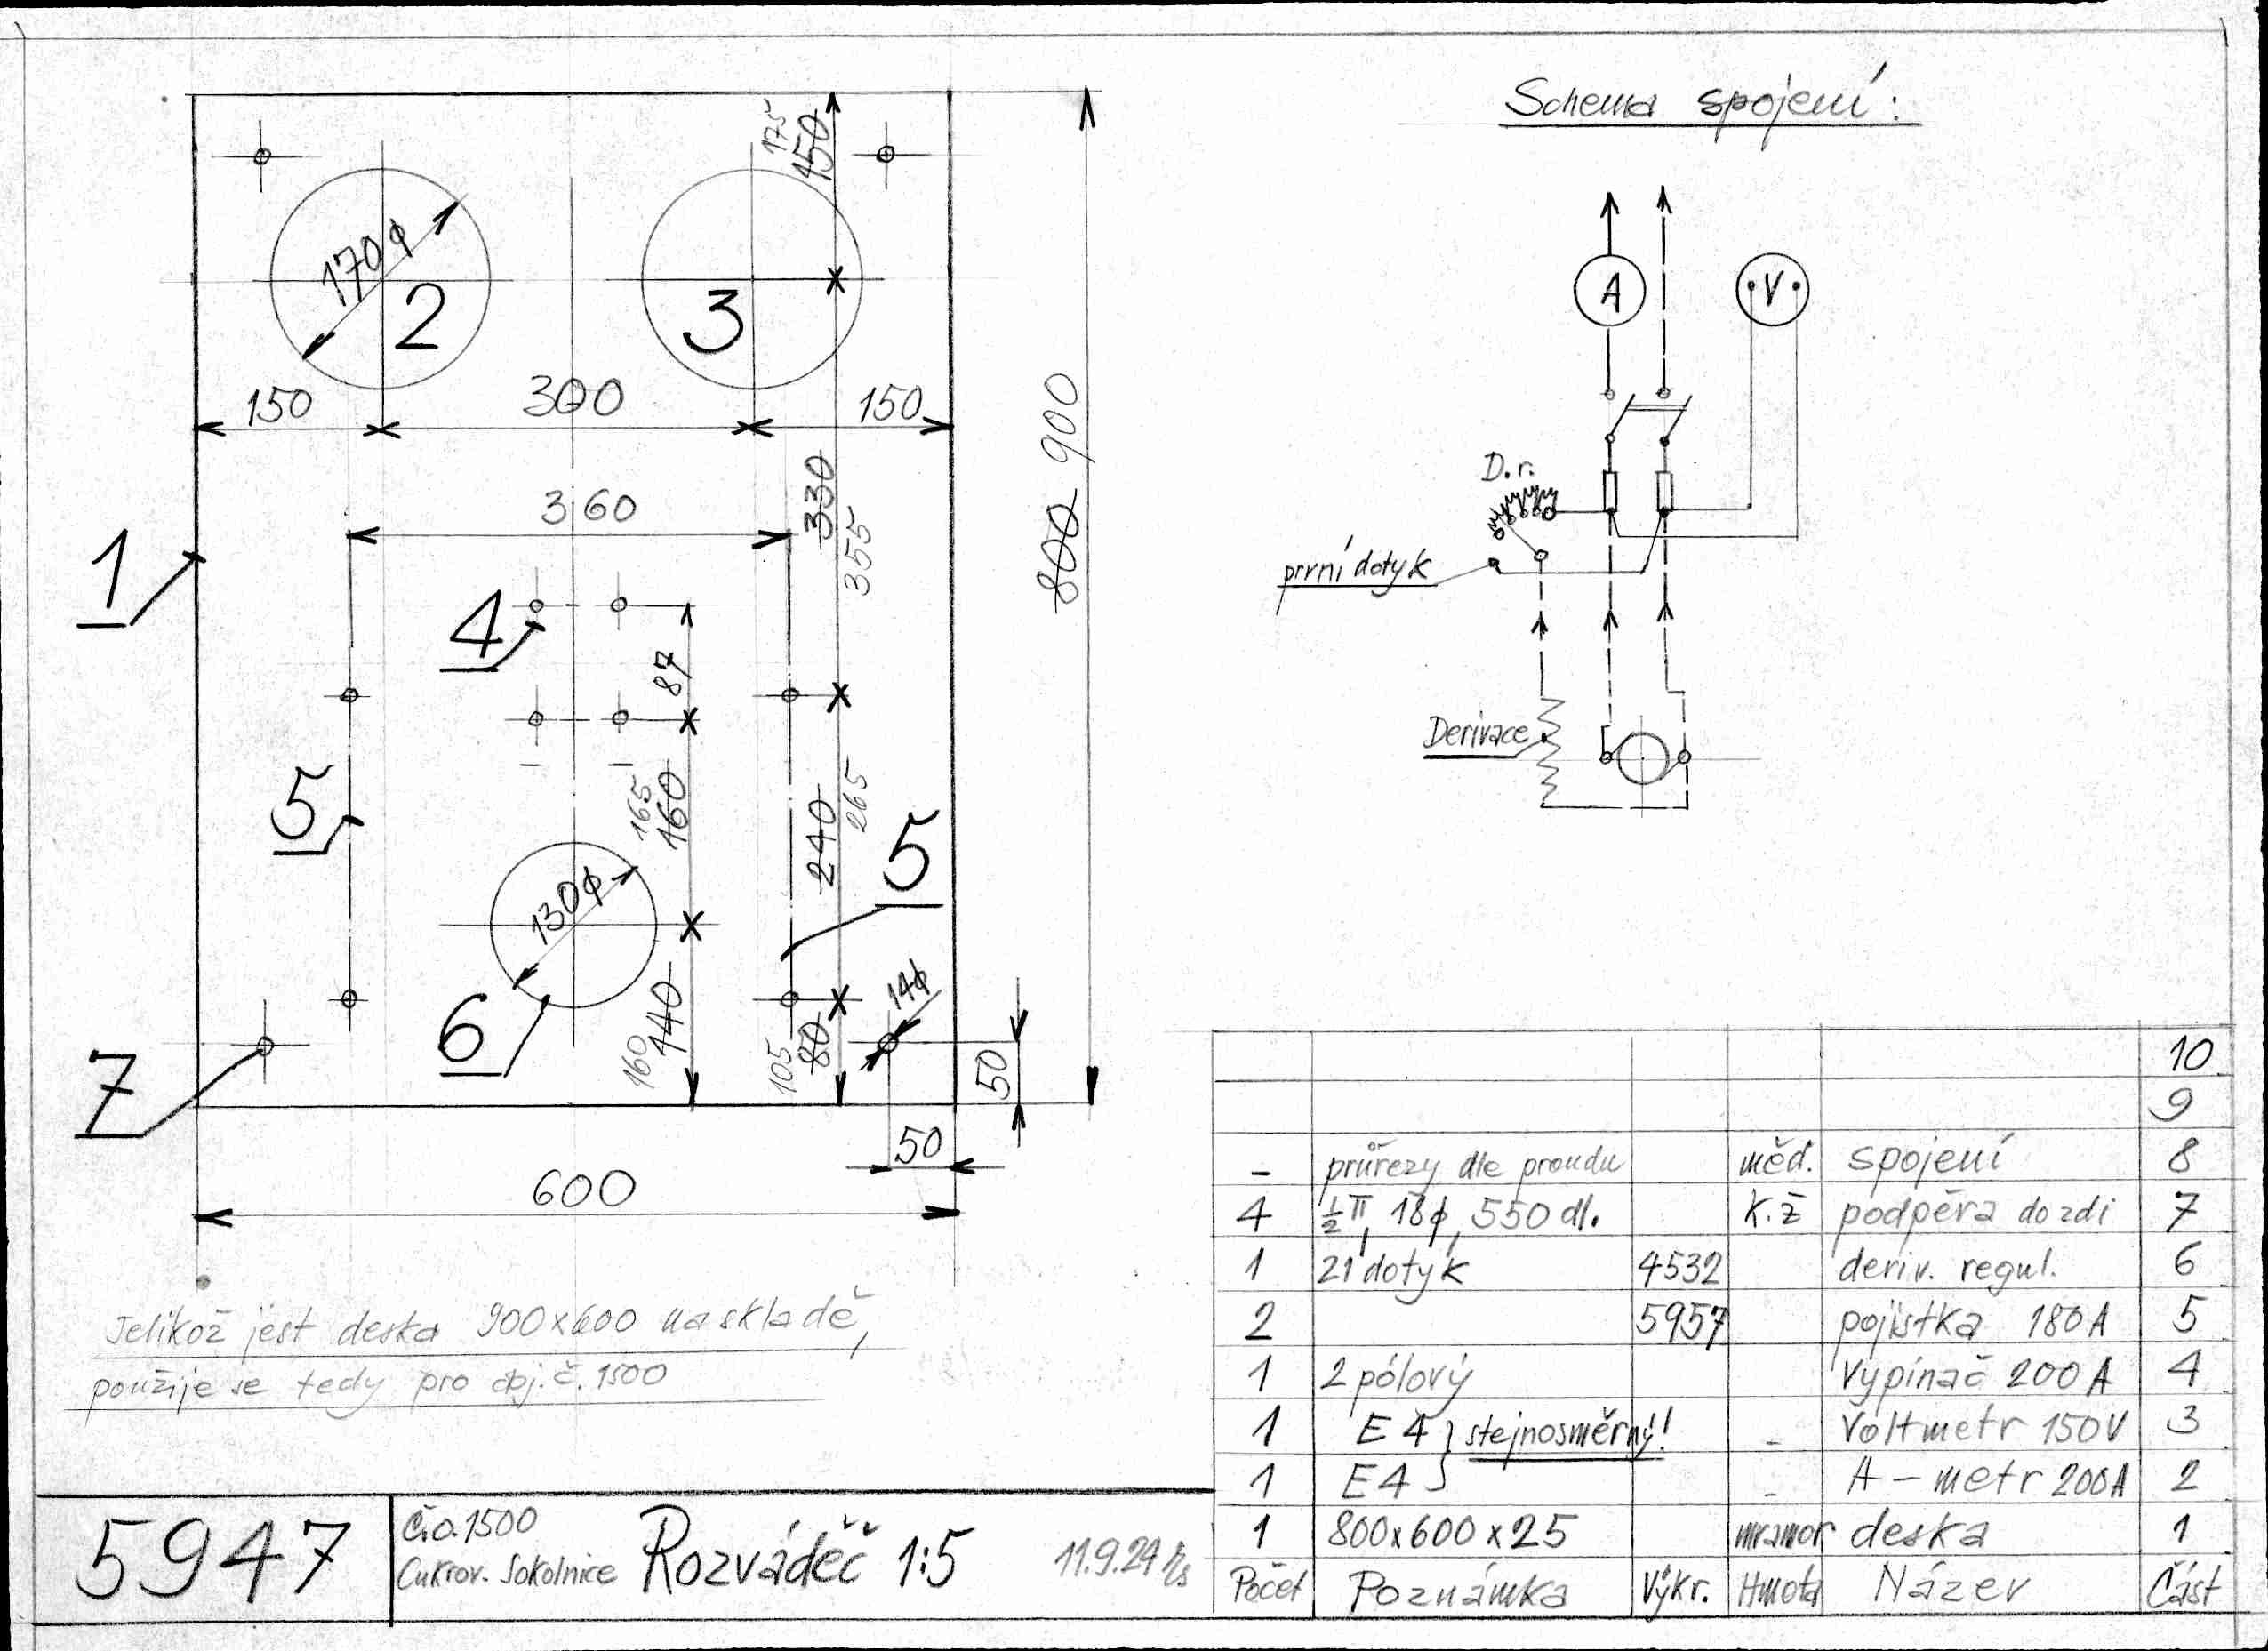 Schema spojení:
175
150
170φ
2
3
150
300
150
800 900
330
355
360
1
4
87
5
165
160
240
265
5
130φ
6
160
140
105
80
14φ
50
7
50
600
A
V
D.r.
první dotyk
Derivace
Jelikož jest deska 900x600 na skladě,
použije se tedy pro obj. č. 1500
10
9
– průřezy dle proudu měď. spojení 8
4 ½ π, 18φ, 550 dl. K.Ž podpěra do zdi 7
1 21 dotyk 4532 deriv. regul. 6
2 5957 pojistka 180A 5
1 2 pólový Vypínač 200A 4
1 E4 } stejnosměrný! – Voltmetr 150V 3
1 E4 – A–metr 200A 2
1 800x600x25 mramor deska 1
Počet Poznámka Výkr. Hmota Název Část
5947
Č.o. 1500
Cukrov. Sokolnice
Rozváděč 1:5
11.9.24